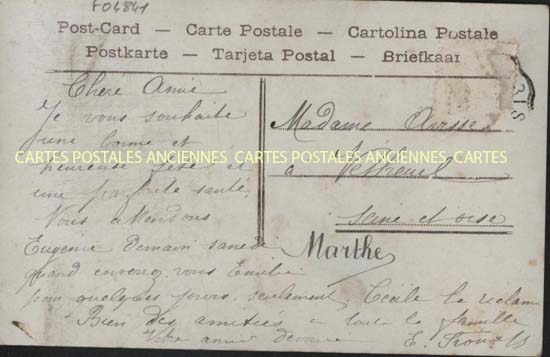 F04841
Post-Card — Carte Postale — Cartolina Postale
Postkarte — Tarjeta Postal — Briefkaar
RIS
Cheré Amie
Je vous souhaite
une bonne et
heureuse fête et
une parfaite santé
Nous attendons
Eugenie demain
quand envoyez vous Emilie
pour quelques jours seulement, Cécile la réclame
Bien des amitiés a toute la famille
Votre amie devouée
E.
Madame
à Vétheuil
Seine et oise
Marthe
CARTES POSTALES ANCIENNES CARTES POSTALES ANCIENNES CARTES